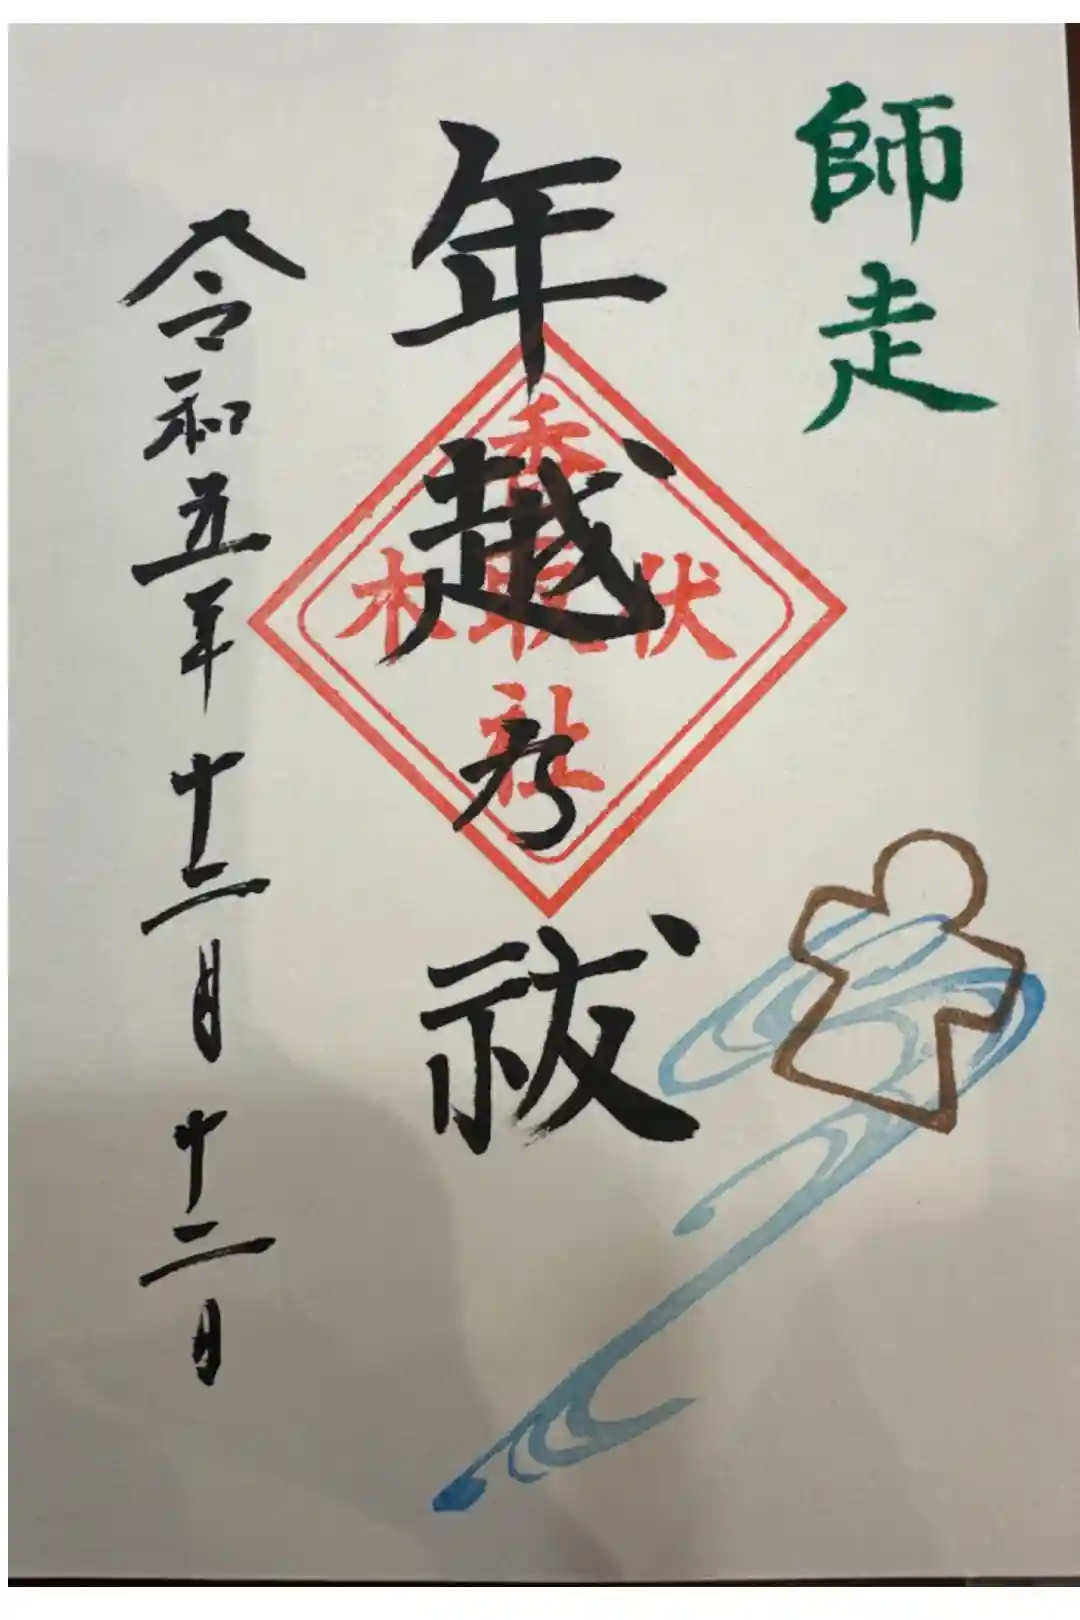 師走
年越乃祓
香取社
伏木
令和五年十二月十二日